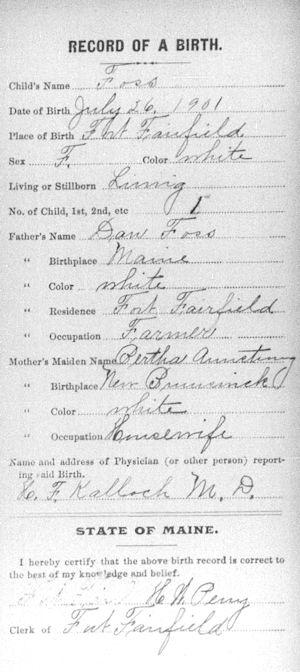 RECORD OF A BIRTH.
Child's Name Foss
Date of Birth July 26, 1901
Place of Birth Fort Fairfield
Sex F. Color white
Living or Stillborn Living
No. of Child, 1st, 2nd, etc 1
Father's Name Dan Foss
" Birthplace Maine
" Color white
" Residence Fort Fairfield
" Occupation Farmer
Mother's Maiden Name Bertha Armstrong
" Birthplace New Brunswick
" Color white
" Occupation Housewife
Name and address of Physician (or other person) report-
ing said Birth.
H. F. Kalloch M. D.
STATE OF MAINE.
I hereby certify that the above birth record is correct to
the best of my knowledge and belief.
H. W. Perry
Clerk of Fort Fairfield